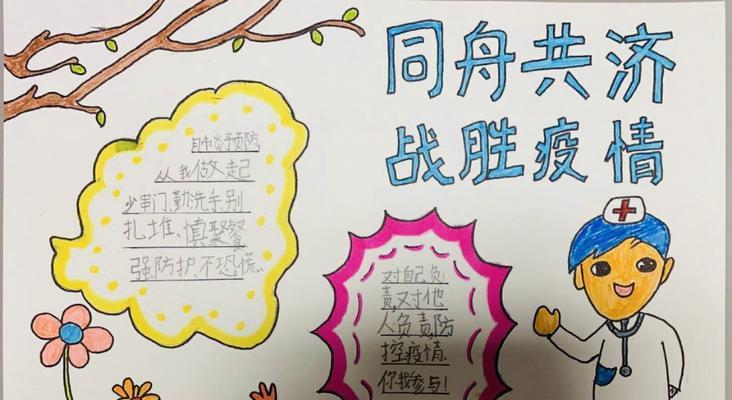 同舟共济
战胜疫情
肺炎预防
从我做起
少串门、勤洗手,别
扎堆、慎聚餐
强防护、不恐慌.
对自己负
责,对他
人负责,防
控疫情
你我参与!